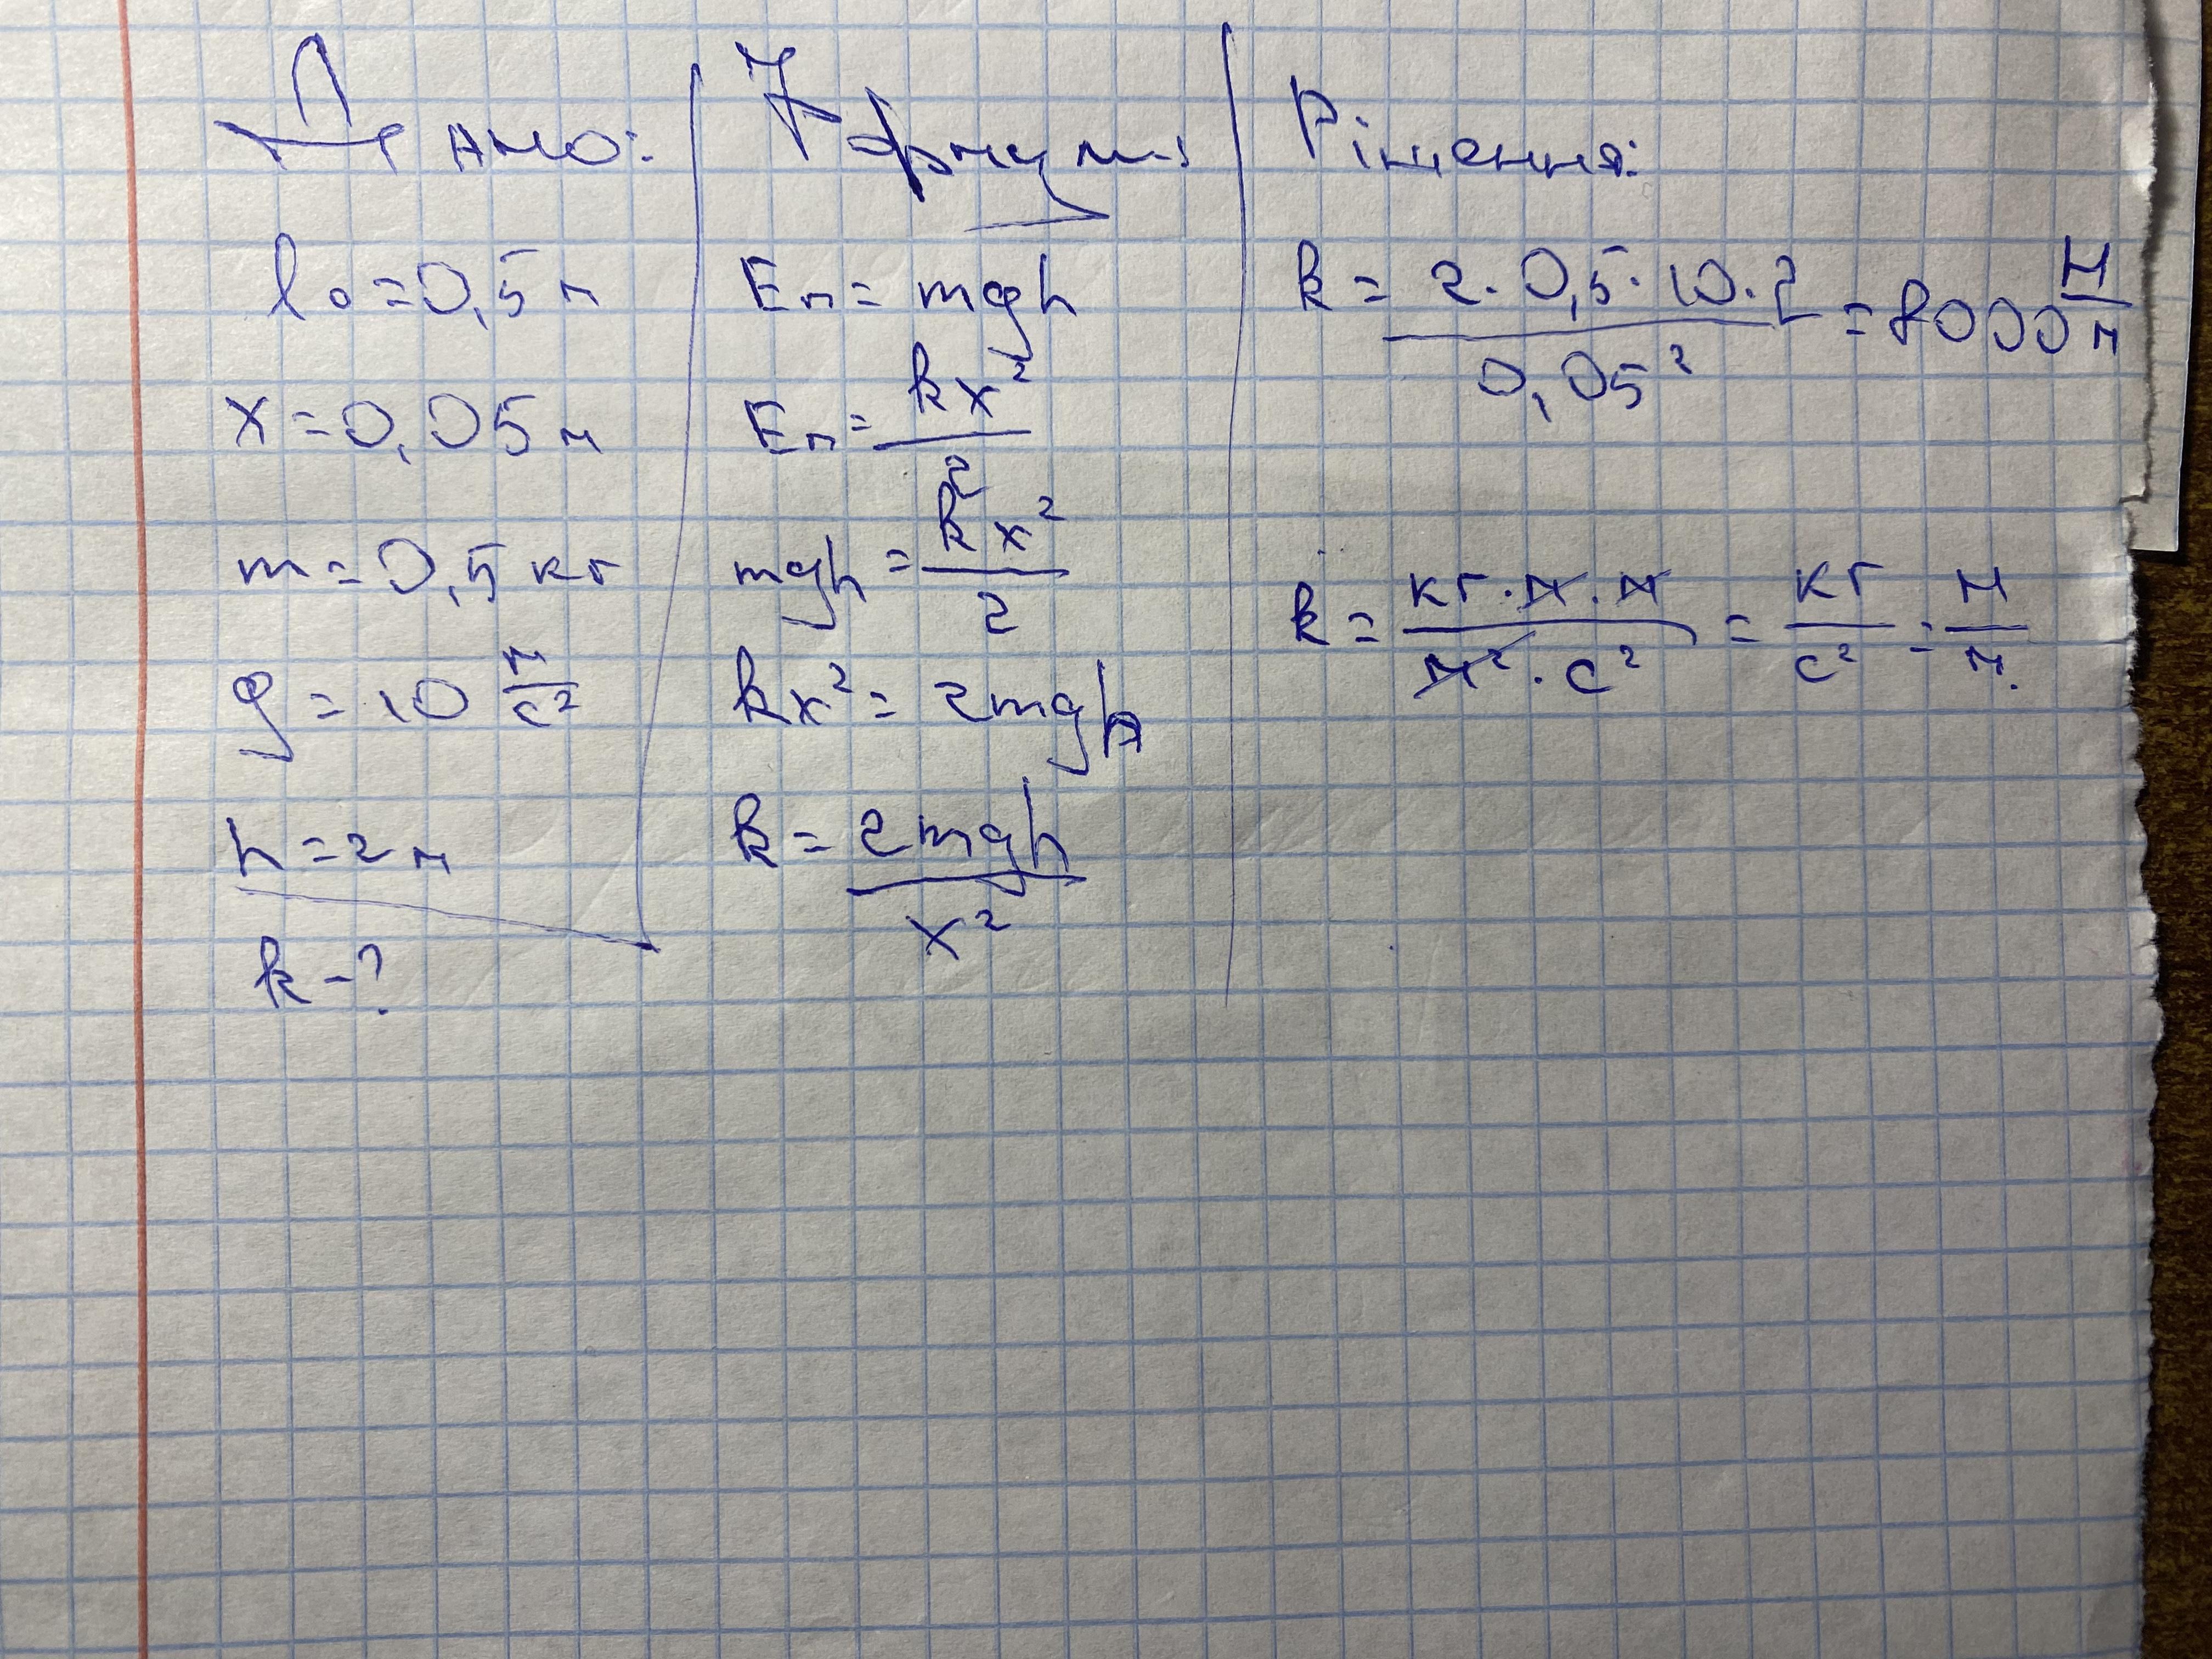 Дано:
l₀ = 0,5 м
x = 0,05 м
m = 0,5 кг
g = 10 м/с²
h = 2 м
k - ?
Eп = mgh
Eп = kx²/2
mgh = kx²/2
kx² = 2mgh
k = 2mgh/x²
Рішення:
k = 2 · 0,5 · 10 · 2/0,05² = 8000 Н/м
k = кг · м · м/м² · с² = кг/с² = Н/м